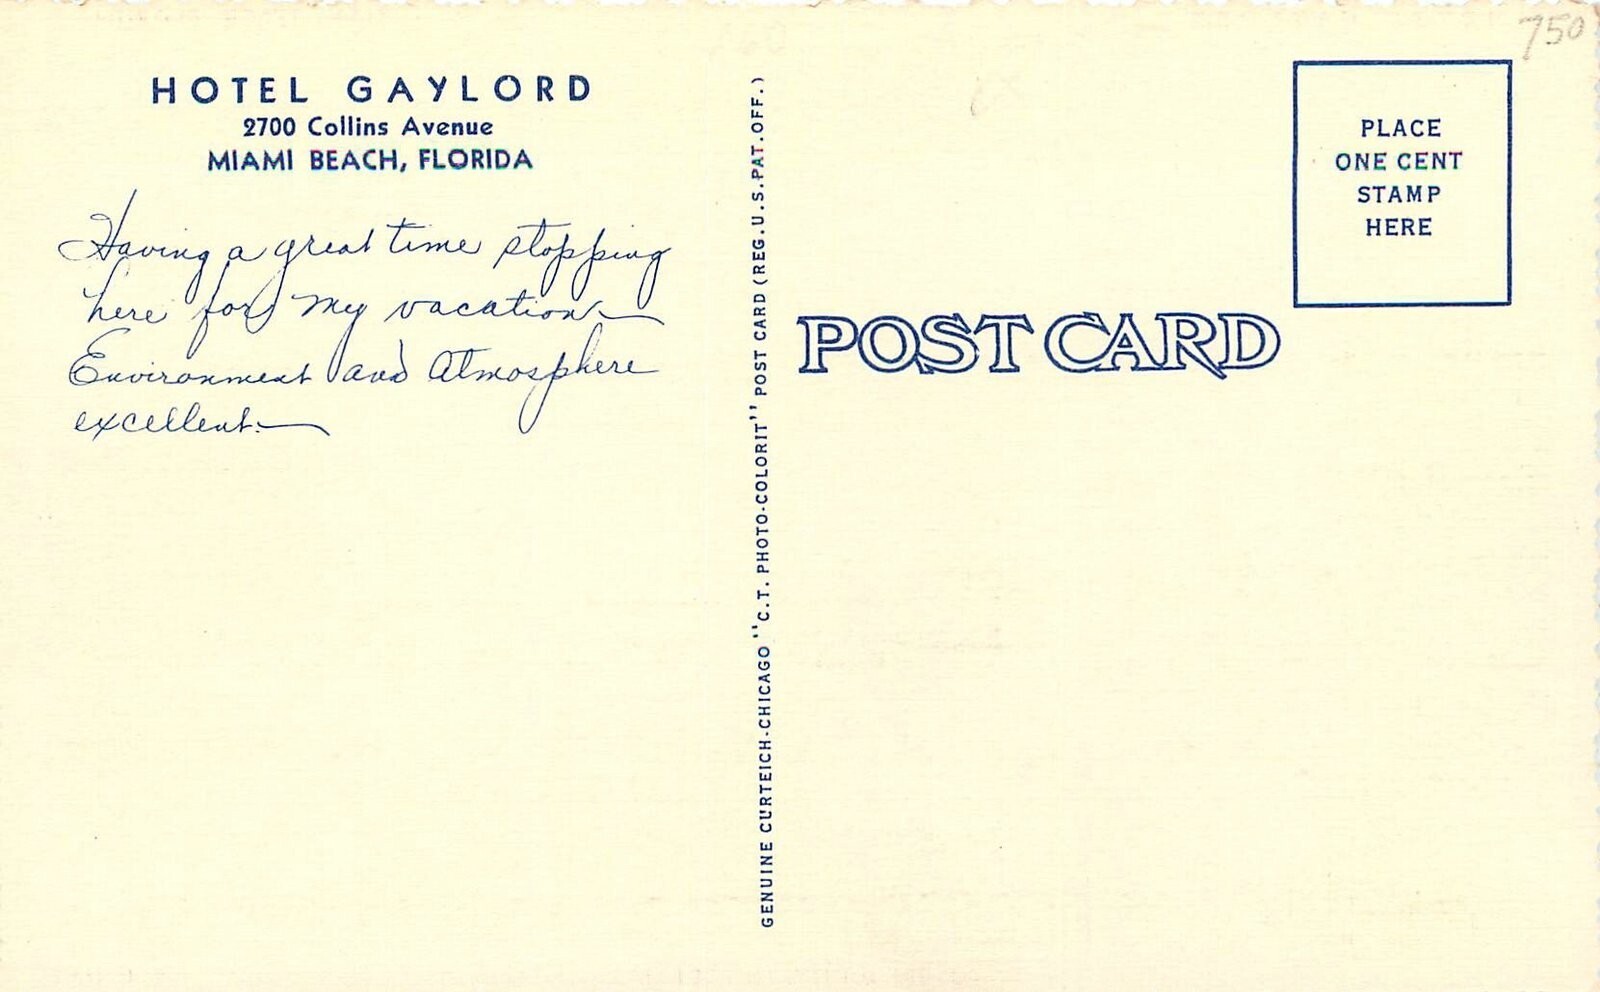 HOTEL GAYLORD
2700 Collins Avenue
MIAMI BEACH, FLORIDA
Having a great time stopping
here for my vacation
Environment and Atmosphere
excellent.
GENUINE CURTEICH-CHICAGO "C.T. PHOTO-COLORIT" POST CARD (REG. U.S. PAT. OFF.)
750
PLACE
ONE CENT
STAMP
HERE
POST CARD